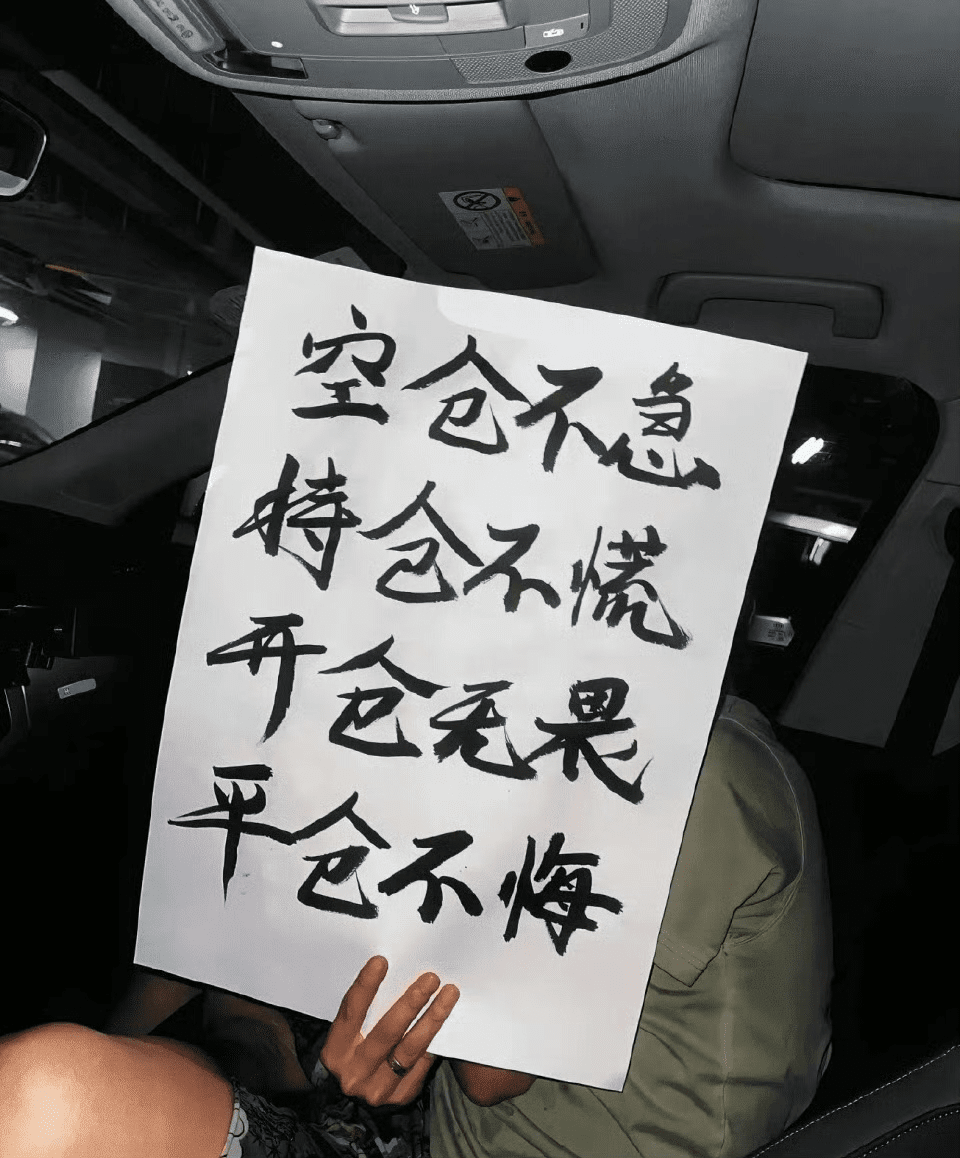 空仓不急
持仓不慌
开仓无畏
平仓不悔